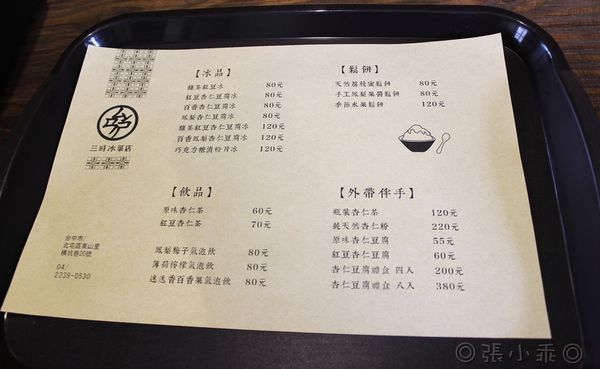 【冰品】
麵茶紅豆冰 80元
紅豆杏仁豆腐冰 80元
百香杏仁豆腐冰 80元
鳳梨杏仁豆腐冰 80元
麵茶紅豆杏仁豆腐冰 120元
百香鳳梨杏仁豆腐冰 120元
巧克力糖漬粉片冰 120元
【鬆餅】
天然荔枝蜜鬆餅 80元
手工鳳梨果醬鬆餅 80元
季節水果鬆餅 120元
三時冰菓店
【飲品】
原味杏仁茶 60元
紅豆杏仁茶 70元
鳳梨梅子氣泡飲 80元
薄荷檸檬氣泡飲 80元
迷迭香百香果氣泡飲 80元
【外帶伴手】
瓶裝杏仁茶 120元
純天然杏仁粉 220元
原味杏仁豆腐 55元
紅豆杏仁豆腐 60元
杏仁豆腐禮盒 四入 200元
杏仁豆腐禮盒 八入 380元
台中市/
北屯區東山里
橫坑巷20號
04/
2239-0530
◎張小乖◎